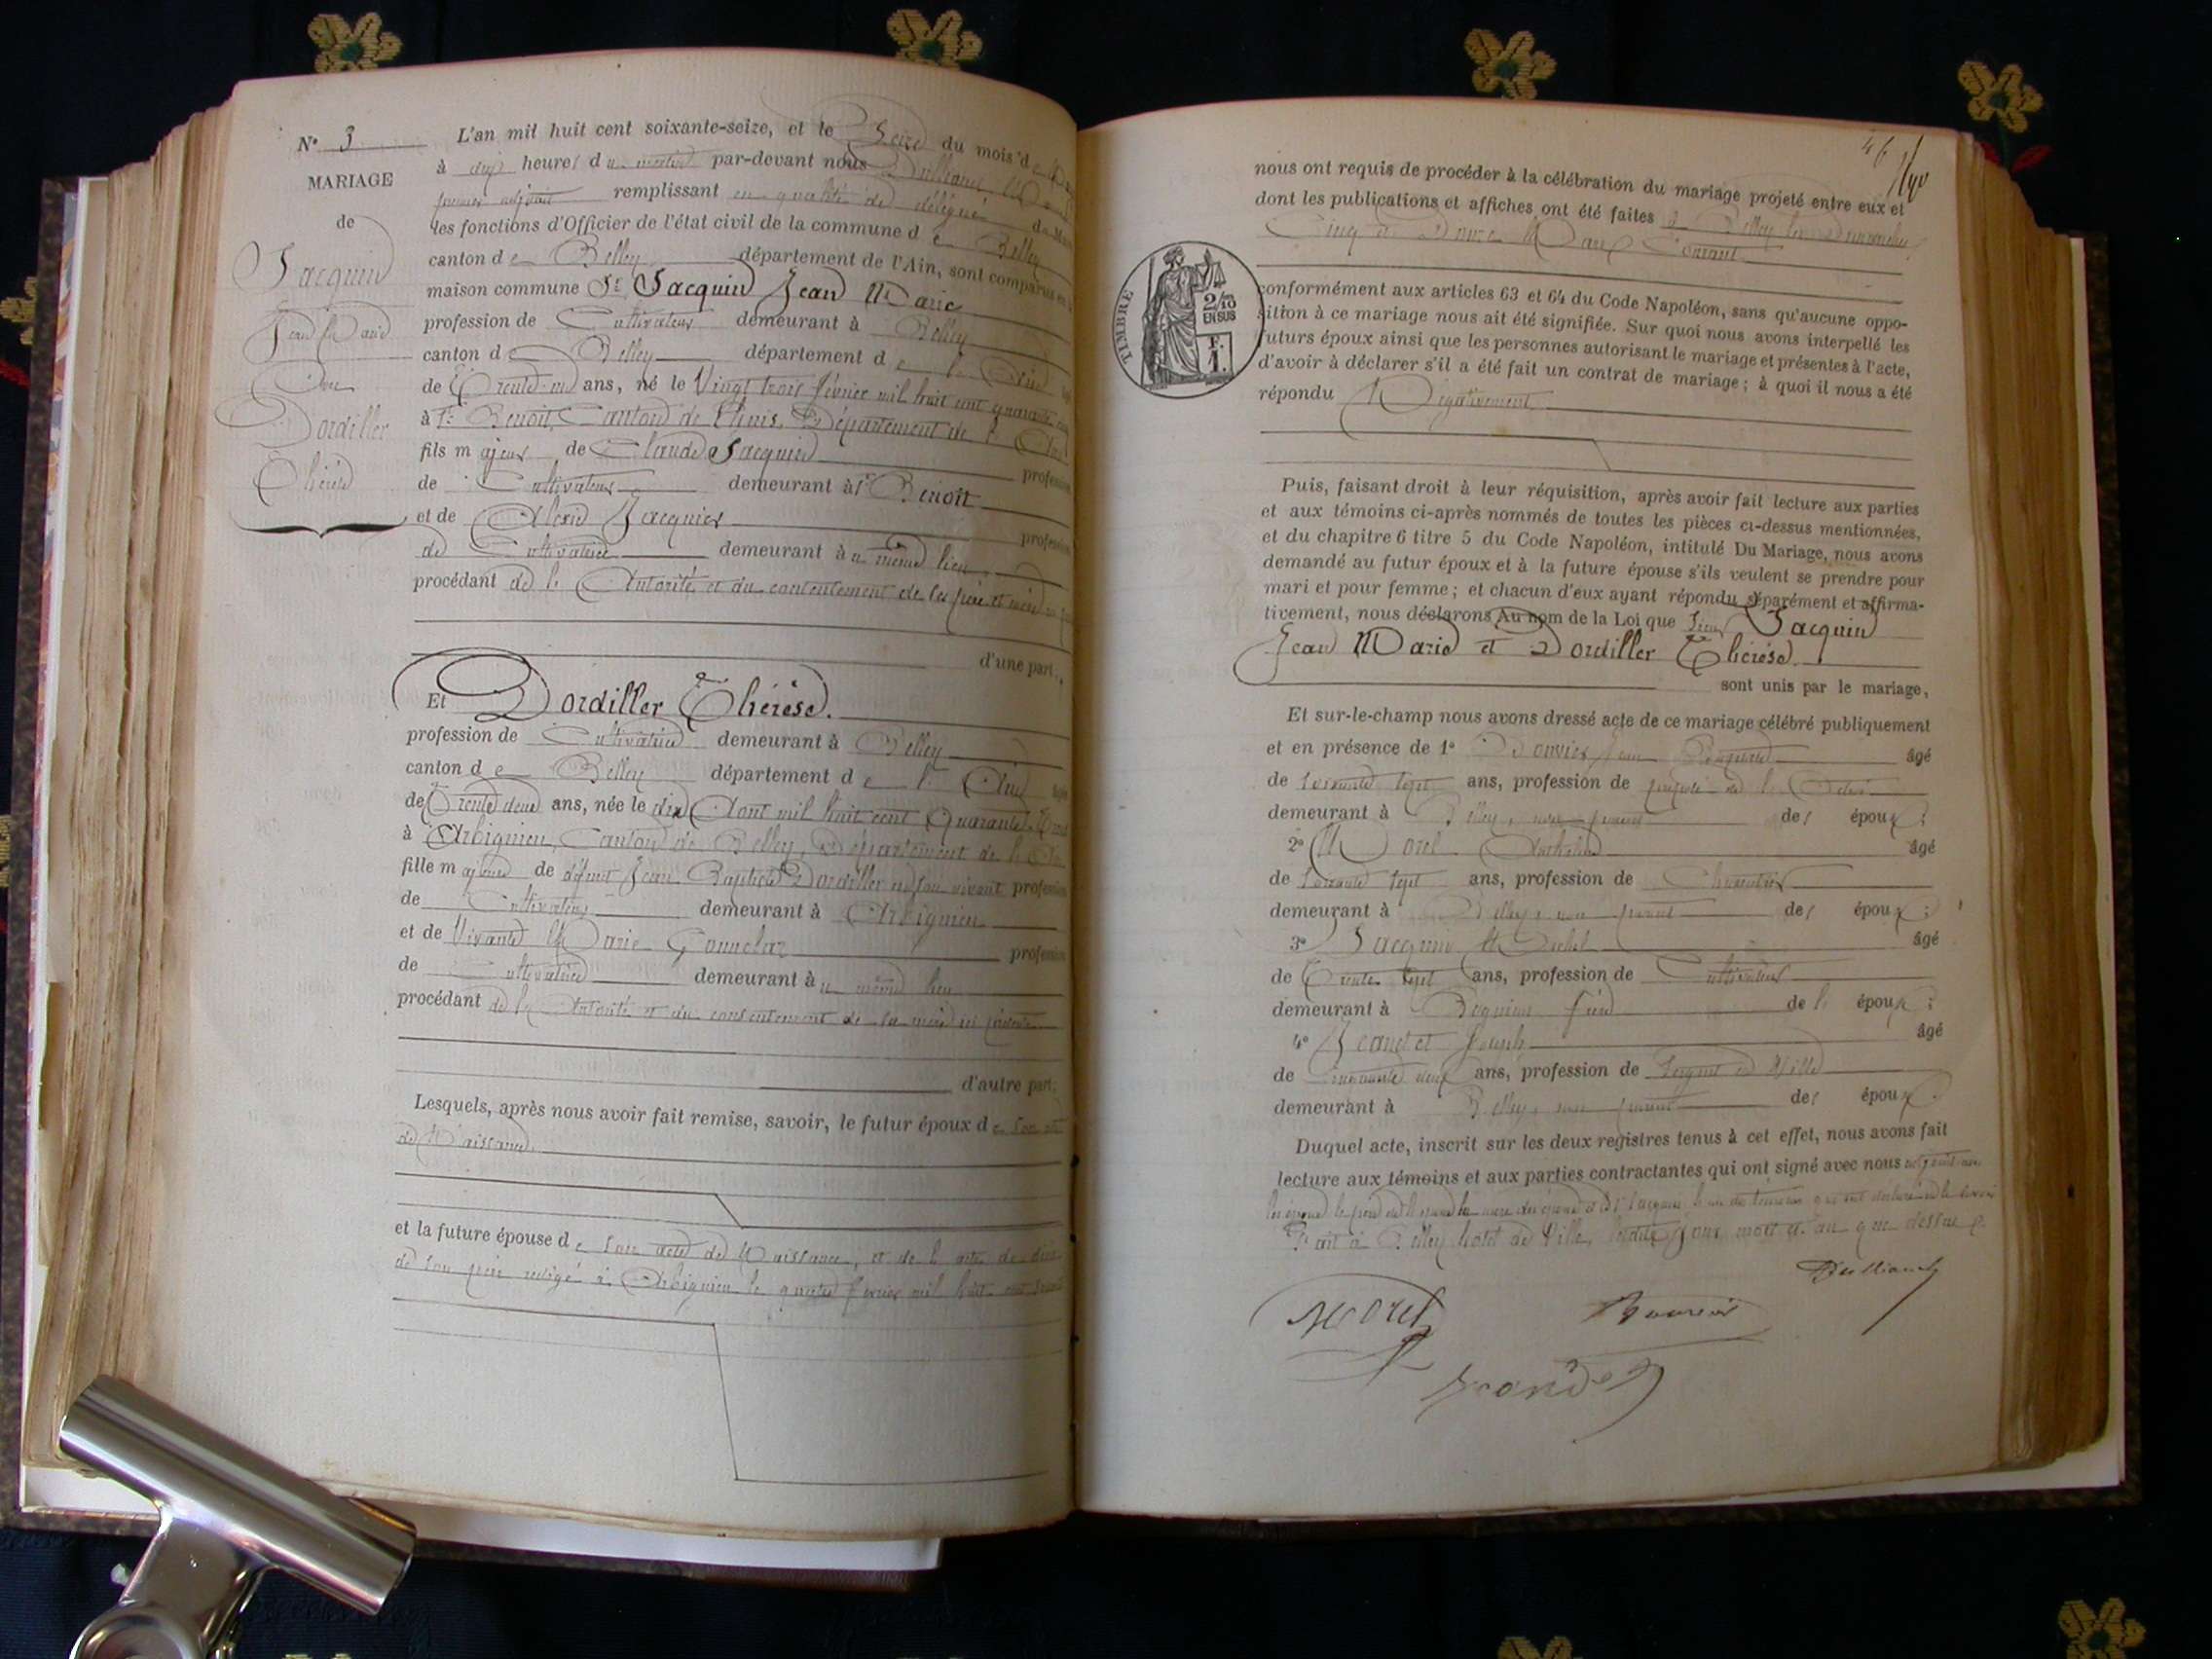 Nº 3
MARIAGE
de
Jacquin
Jean Marie
Avec
Dordiller
Thérèse
L'an mil huit cent soixante-seize, et le Seize du mois de
à dix heures du matin par-devant nous
premier adjoint remplissant en qualité de délégué du
les fonctions d'Officier de l'état civil de la commune de Belley
canton de Belley département de l'Ain, sont comparus en
maison commune Sr. Jacquin Jean Marie
profession de Cultivateur demeurant à Belley
canton de Belley département de l'Ain
de Trente-un ans, né le Vingt trois février mil huit cent quarante
à St. Benoit, Canton de Lhuis, Département de l'Ain
fils majeur de Claude Jacquin profession
de Cultivateur demeurant à St Benoit
et de Jacquier profession
de Cultivatrice demeurant au même lieu
procédant de l'Autorité et du consentement de ses père et mère
d'une part.
Et Dordiller Thérèse.
profession de Cultivatrice demeurant à Belley
canton de Belley département de l'Ain
de Trente deux ans, née le dix Août mil huit cent Quarante Trois
à Arbignieu, Canton de Belley, Département de l'Ain
fille majeure de défunt Jean Baptiste Dordiller en son vivant profession
de Cultivateur demeurant à Arbignieu
et de Vivante Marie profession
de Cultivatrice demeurant au même lieu
procédant de l'Autorité et du consentement de sa mère ici présente
d'autre part.
Lesquels, après nous avoir fait remise, savoir, le futur époux de son acte
de Naissance.
et la future épouse de son acte de Naissance, et de l'acte de décès
de son père rédigé à Arbignieu le quatre février mil huit cent
46
nous ont requis de procéder à la célébration du mariage projeté entre eux et
dont les publications et affiches ont été faites à Belley les Dimanches
Cinq et Douze Mars Courant
TIMBRE
2/10
EN SUS
F.
1.
conformément aux articles 63 et 64 du Code Napoléon, sans qu'aucune oppo-
sition à ce mariage nous ait été signifiée. Sur quoi nous avons interpellé les
futurs époux ainsi que les personnes autorisant le mariage et présentes à l'acte,
d'avoir à déclarer s'il a été fait un contrat de mariage ; à quoi il nous a été
répondu Négativement
Puis, faisant droit à leur réquisition, après avoir fait lecture aux parties
et aux témoins ci-après nommés de toutes les pièces ci-dessus mentionnées,
et du chapitre 6 titre 5 du Code Napoléon, intitulé Du Mariage, nous avons
demandé au futur époux et à la future épouse s'ils veulent se prendre pour
mari et pour femme ; et chacun d'eux ayant répondu séparément et affirma-
tivement, nous déclarons Au nom de la Loi que Jacquin
Jean Marie et Dordiller Thérèse.
sont unis par le mariage,
Et sur-le-champ nous avons dressé acte de ce mariage célébré publiquement
et en présence de 1º Bouvier Jean Baptiste âgé
de soixante sept ans, profession de
demeurant à Belley, non parent des époux ;
2º Morel Anthelme âgé
de sept ans, profession de
demeurant à Belley, non parent des époux ;
3º Jacquin Michel âgé
de Trente sept ans, profession de Cultivateur
demeurant à de l'époux ;
4º Joseph âgé
de deux ans, profession de Sergent de Ville
demeurant à Belley, non parent des époux.
Duquel acte, inscrit sur les deux registres tenus à cet effet, nous avons fait
lecture aux témoins et aux parties contractantes qui ont signé avec nous
Fait à Belley hôtel de Ville, lesdits jour mois et an que dessus
Morel
Bouvier